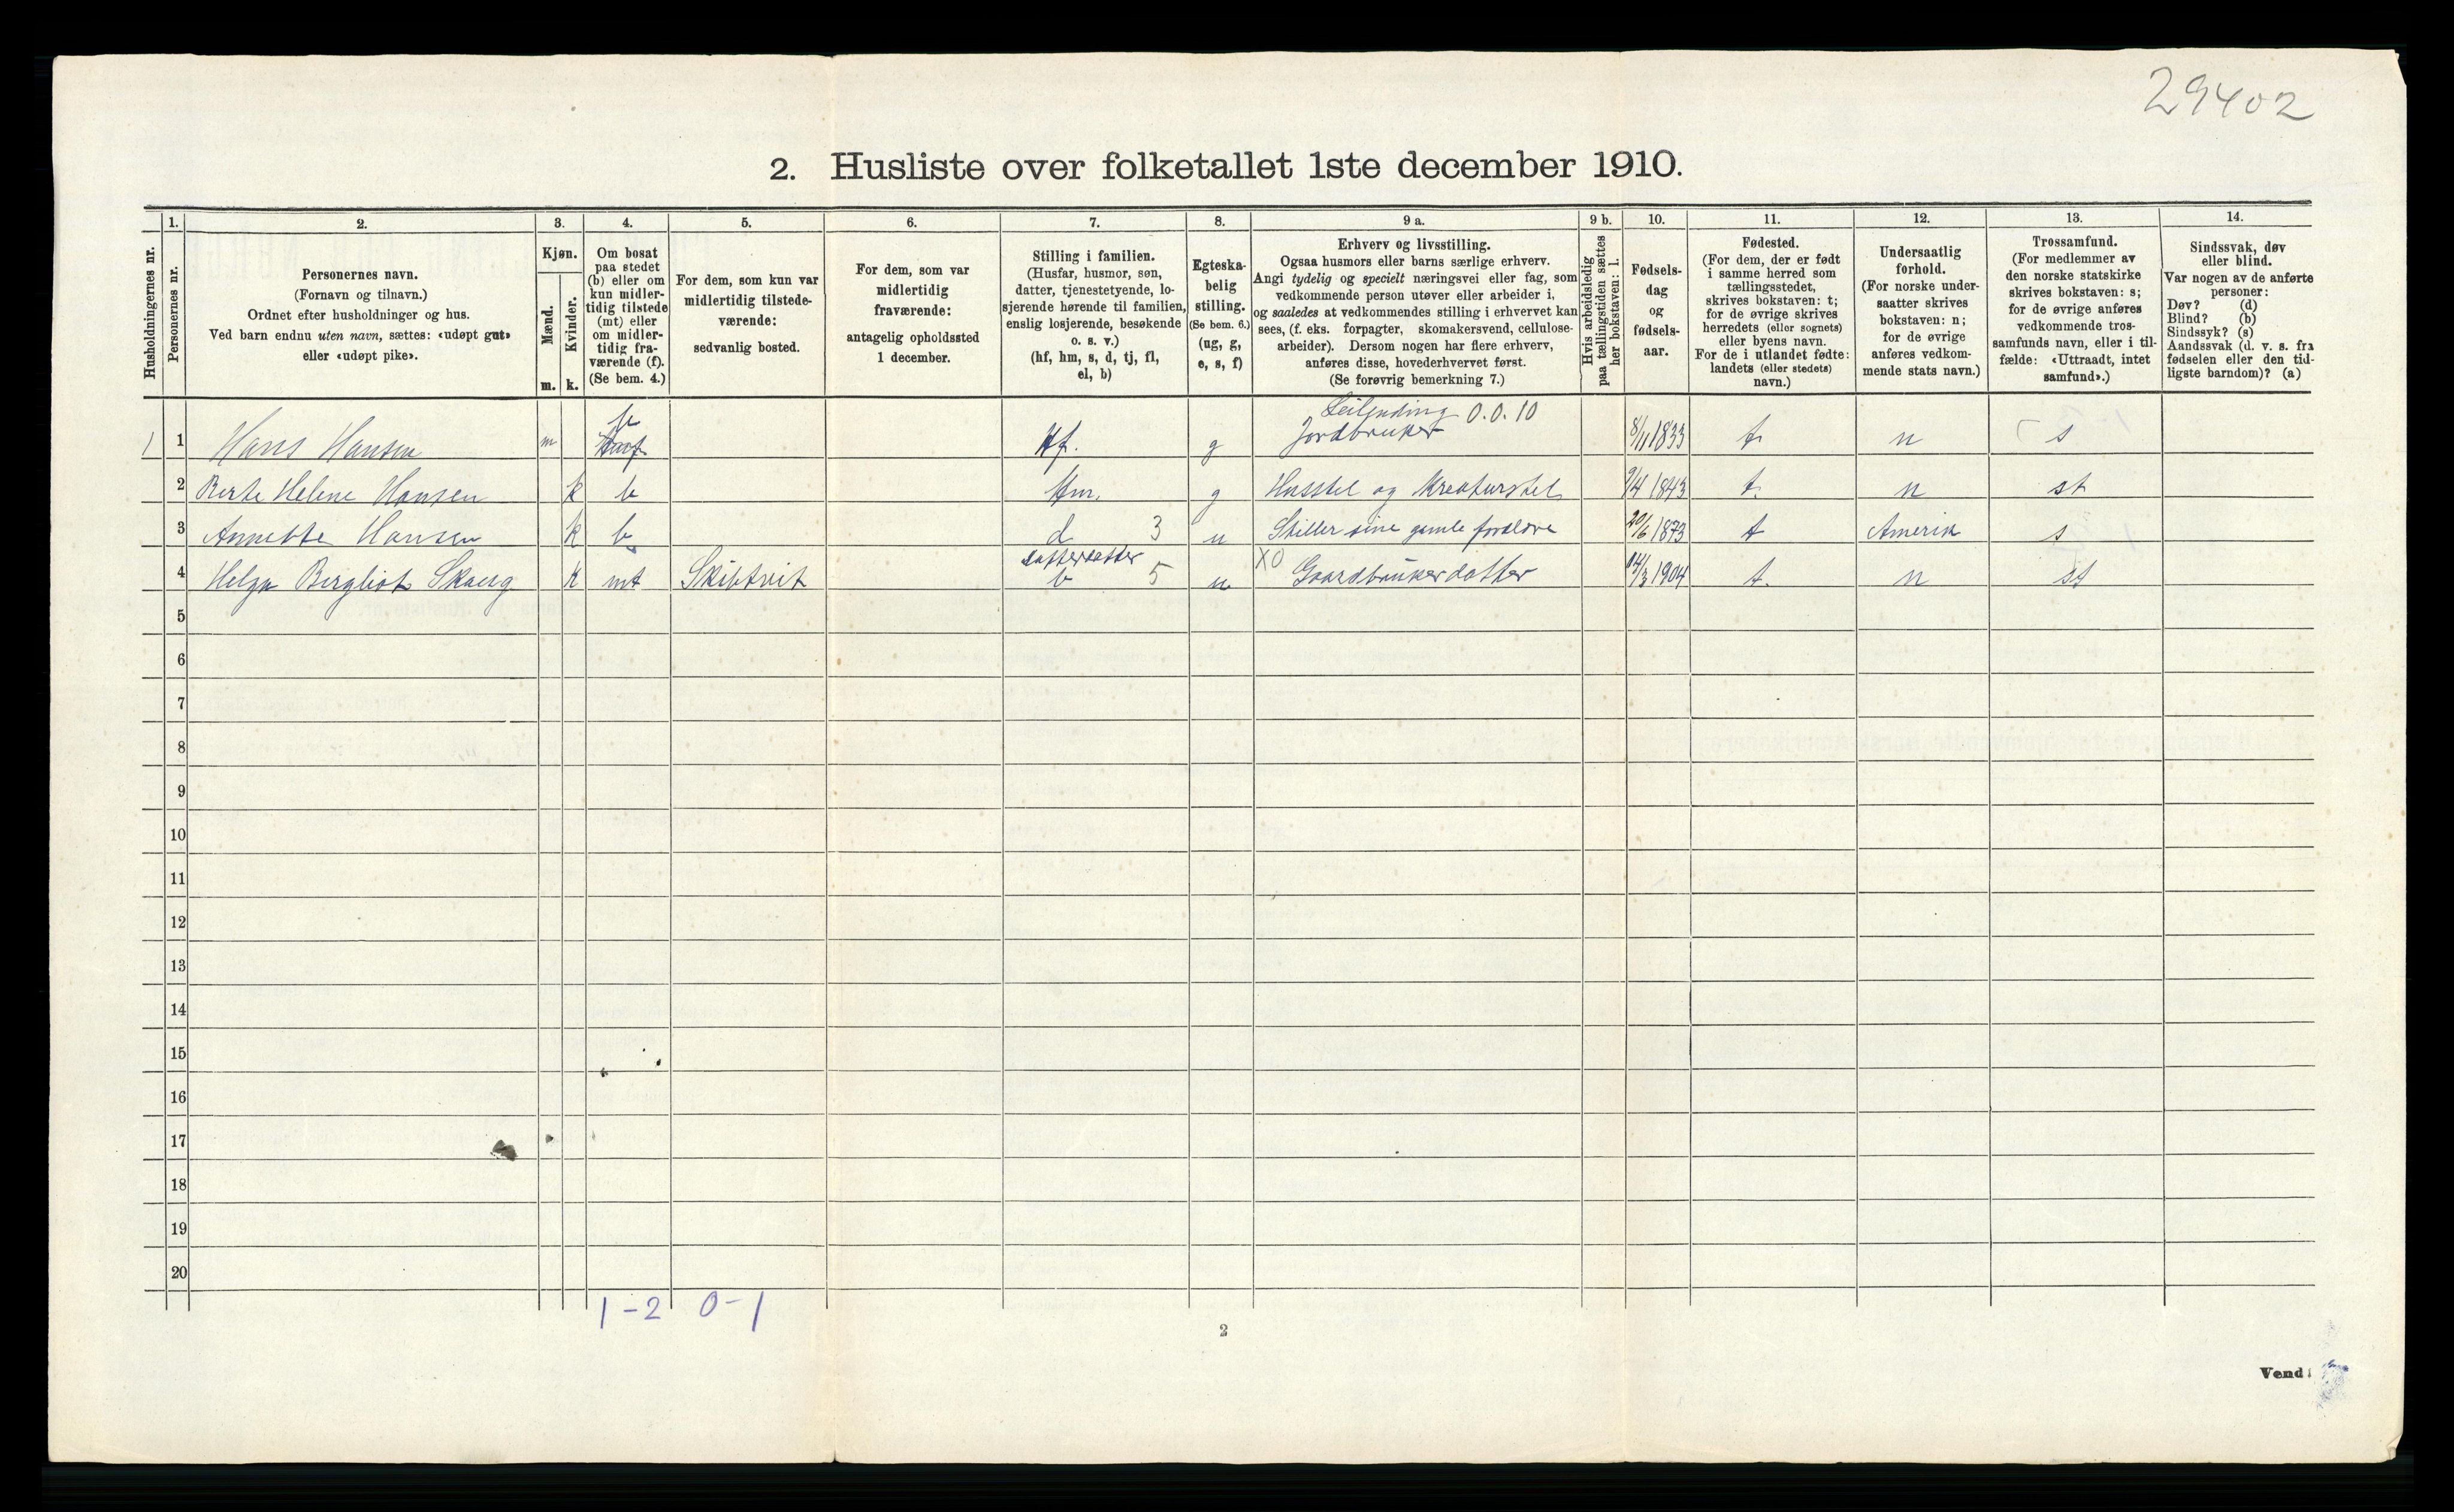 29402
2. Husliste over folketallet 1ste december 1910.
Husholdningernes nr.
1.
Personernes nr.
2.
Personernes navn.
(Fornavn og tilnavn.)
Ordnet efter husholdninger og hus.
Ved barn endnu uten navn, sættes: «udøpt gut»
eller «udøpt pike».
3.
Kjøn.
Mænd.
Kvinder.
m. k.
4.
Om bosat
paa stedet
(b) eller om
kun midler-
tidig tilstede
(mt) eller
om midler-
tidig fra-
værende (f).
(Se bem. 4.)
5.
For dem, som kun var
midlertidig tilstede-
værende:
sedvanlig bosted.
6.
For dem, som var
midlertidig
fraværende:
antagelig opholdssted
1 december.
7.
Stilling i familien.
(Husfar, husmor, søn,
datter, tjenestetyende, lo-
sjerende hørende til familien,
enslig losjerende, besøkende
o. s. v.)
(hf, hm, s, d, tj, fl,
el, b)
8.
Egteska-
belig
stilling.
(Se bem. 6.)
(ug, g,
e, s, f)
9 a.
Erhverv og livsstilling.
Ogsaa husmors eller barns særlige erhverv.
Angi tydelig og specielt næringsvei eller fag, som
vedkommende person utøver eller arbeider i,
og saaledes at vedkommendes stilling i erhvervet kan
sees, (f. eks. forpagter, skomakersvend, cellulose-
arbeider). Dersom nogen har flere erhverv,
anføres disse, hovederhvervet først.
(Se forøvrig bemerkning 7.)
9 b.
Hvis arbeidsledig
paa tællingstiden sættes
her bokstaven: l.
10.
Fødsels-
dag
og
fødsels-
aar.
11.
Fødested.
(For dem, der er født
i samme herred som
tællingsstedet,
skrives bokstaven: t;
for de øvrige skrives
herredets (eller sognets)
eller byens navn.
For de i utlandet fødte:
landets (eller stedets)
navn.)
12.
Undersaatlig
forhold.
(For norske under-
saatter skrives
bokstaven: n;
for de øvrige
anføres vedkom-
mende stats navn.)
13.
Trossamfund.
(For medlemmer av
den norske statskirke
skrives bokstaven: s;
for de øvrige anføres
vedkommende tros-
samfunds navn, eller i til-
fælde: «Uttraadt, intet
samfund».)
14.
Sindssvak, døv
eller blind.
Var nogen av de anførte
personer:
Døv? (d)
Blind? (b)
Sindssyk? (s)
Aandssvak (d. v. s. fra
fødselen eller den tid-
ligste barndom)? (a)
b Leilending 0.0.10
1 1 Hans Hansen m Hf. g Jordbruker 8/11 1833 t. n s
2 Berte Helene Hansen k b Hm. g Husstel og kreaturstel 9/4 1843 t. n st
3 Annette Hansen k b d 3 u Steller sine gamle forældre 20/6 1873 t Amerik s
datterdatter
4 Helga Bergliot Skaug k mt Skibtvit b 5 u X0 Gaardbrukerdatter 14/3 1904 t. n st
5
6
7
8
9
10
11
12
13
14
15
16
17
18
19
20
1 - 2 0 - 1
2
Vend!